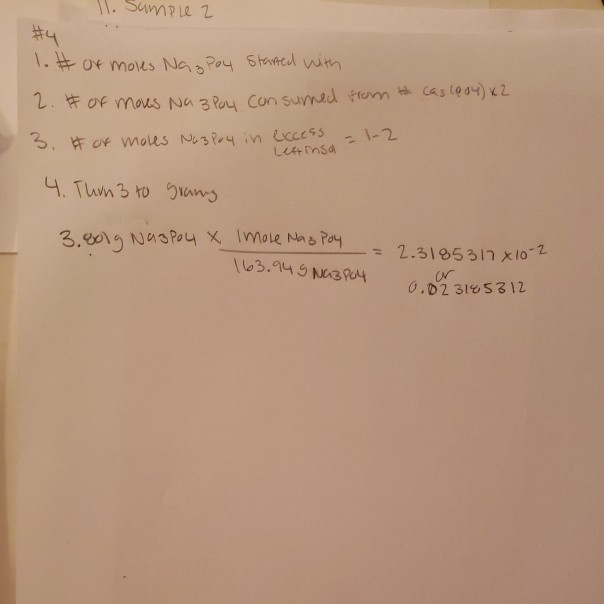 11. Sample 2
#4
1. # of moles Na3PO4 started with
2. # of moles Na3PO4 consumed from Ca3(PO4)x2
3. # of moles Na3PO4 in excess = 1-2
Left
4. Turn 3 to grams
3.801g Na3PO4 x 1mole Na3PO4 = 2.3185317 x10-2
163.94g Na3PO4
or
0.023185312